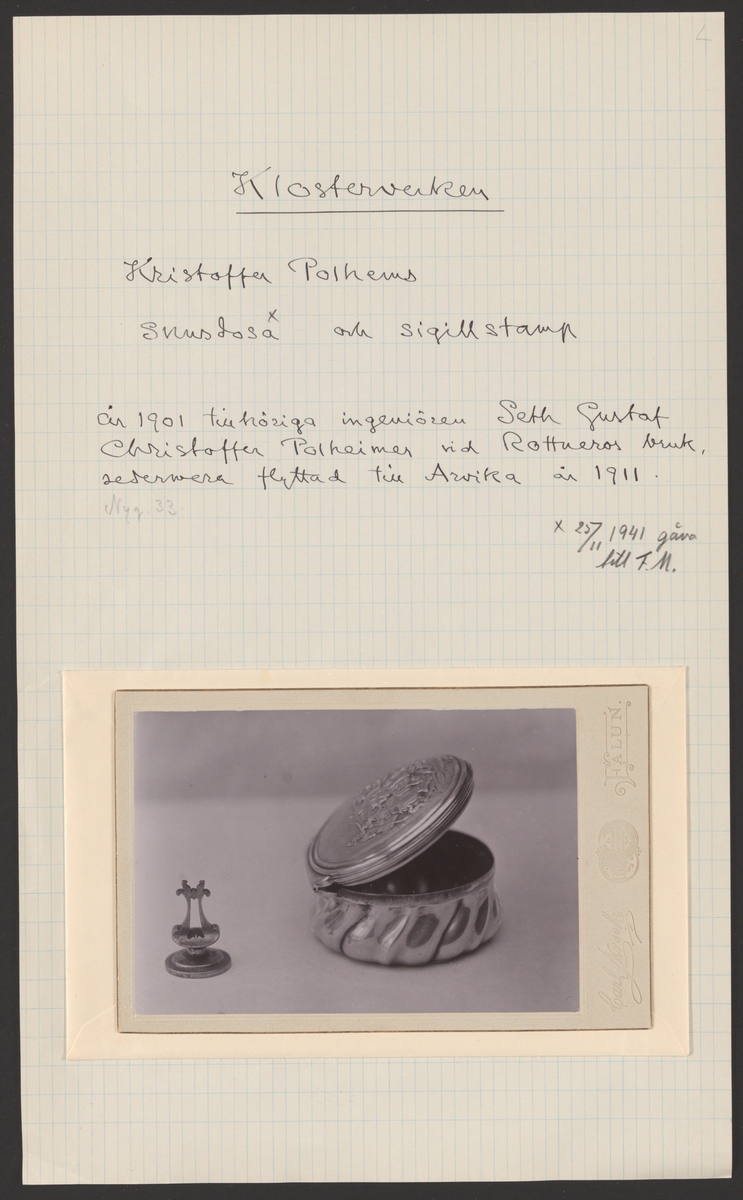 Klosterverken
Kristoffer Polhems
x
Snusdosa och sigillstamp
år 1901 tillhöriga ingeniören Seth Gustaf
Christoffer Polheimer vid Rottneros bruk,
sedermera flyttad till Arvika år 1911.
Nyq. 33.
x 25/11 1941 gåva
till F.M.
FALUN.
Carl